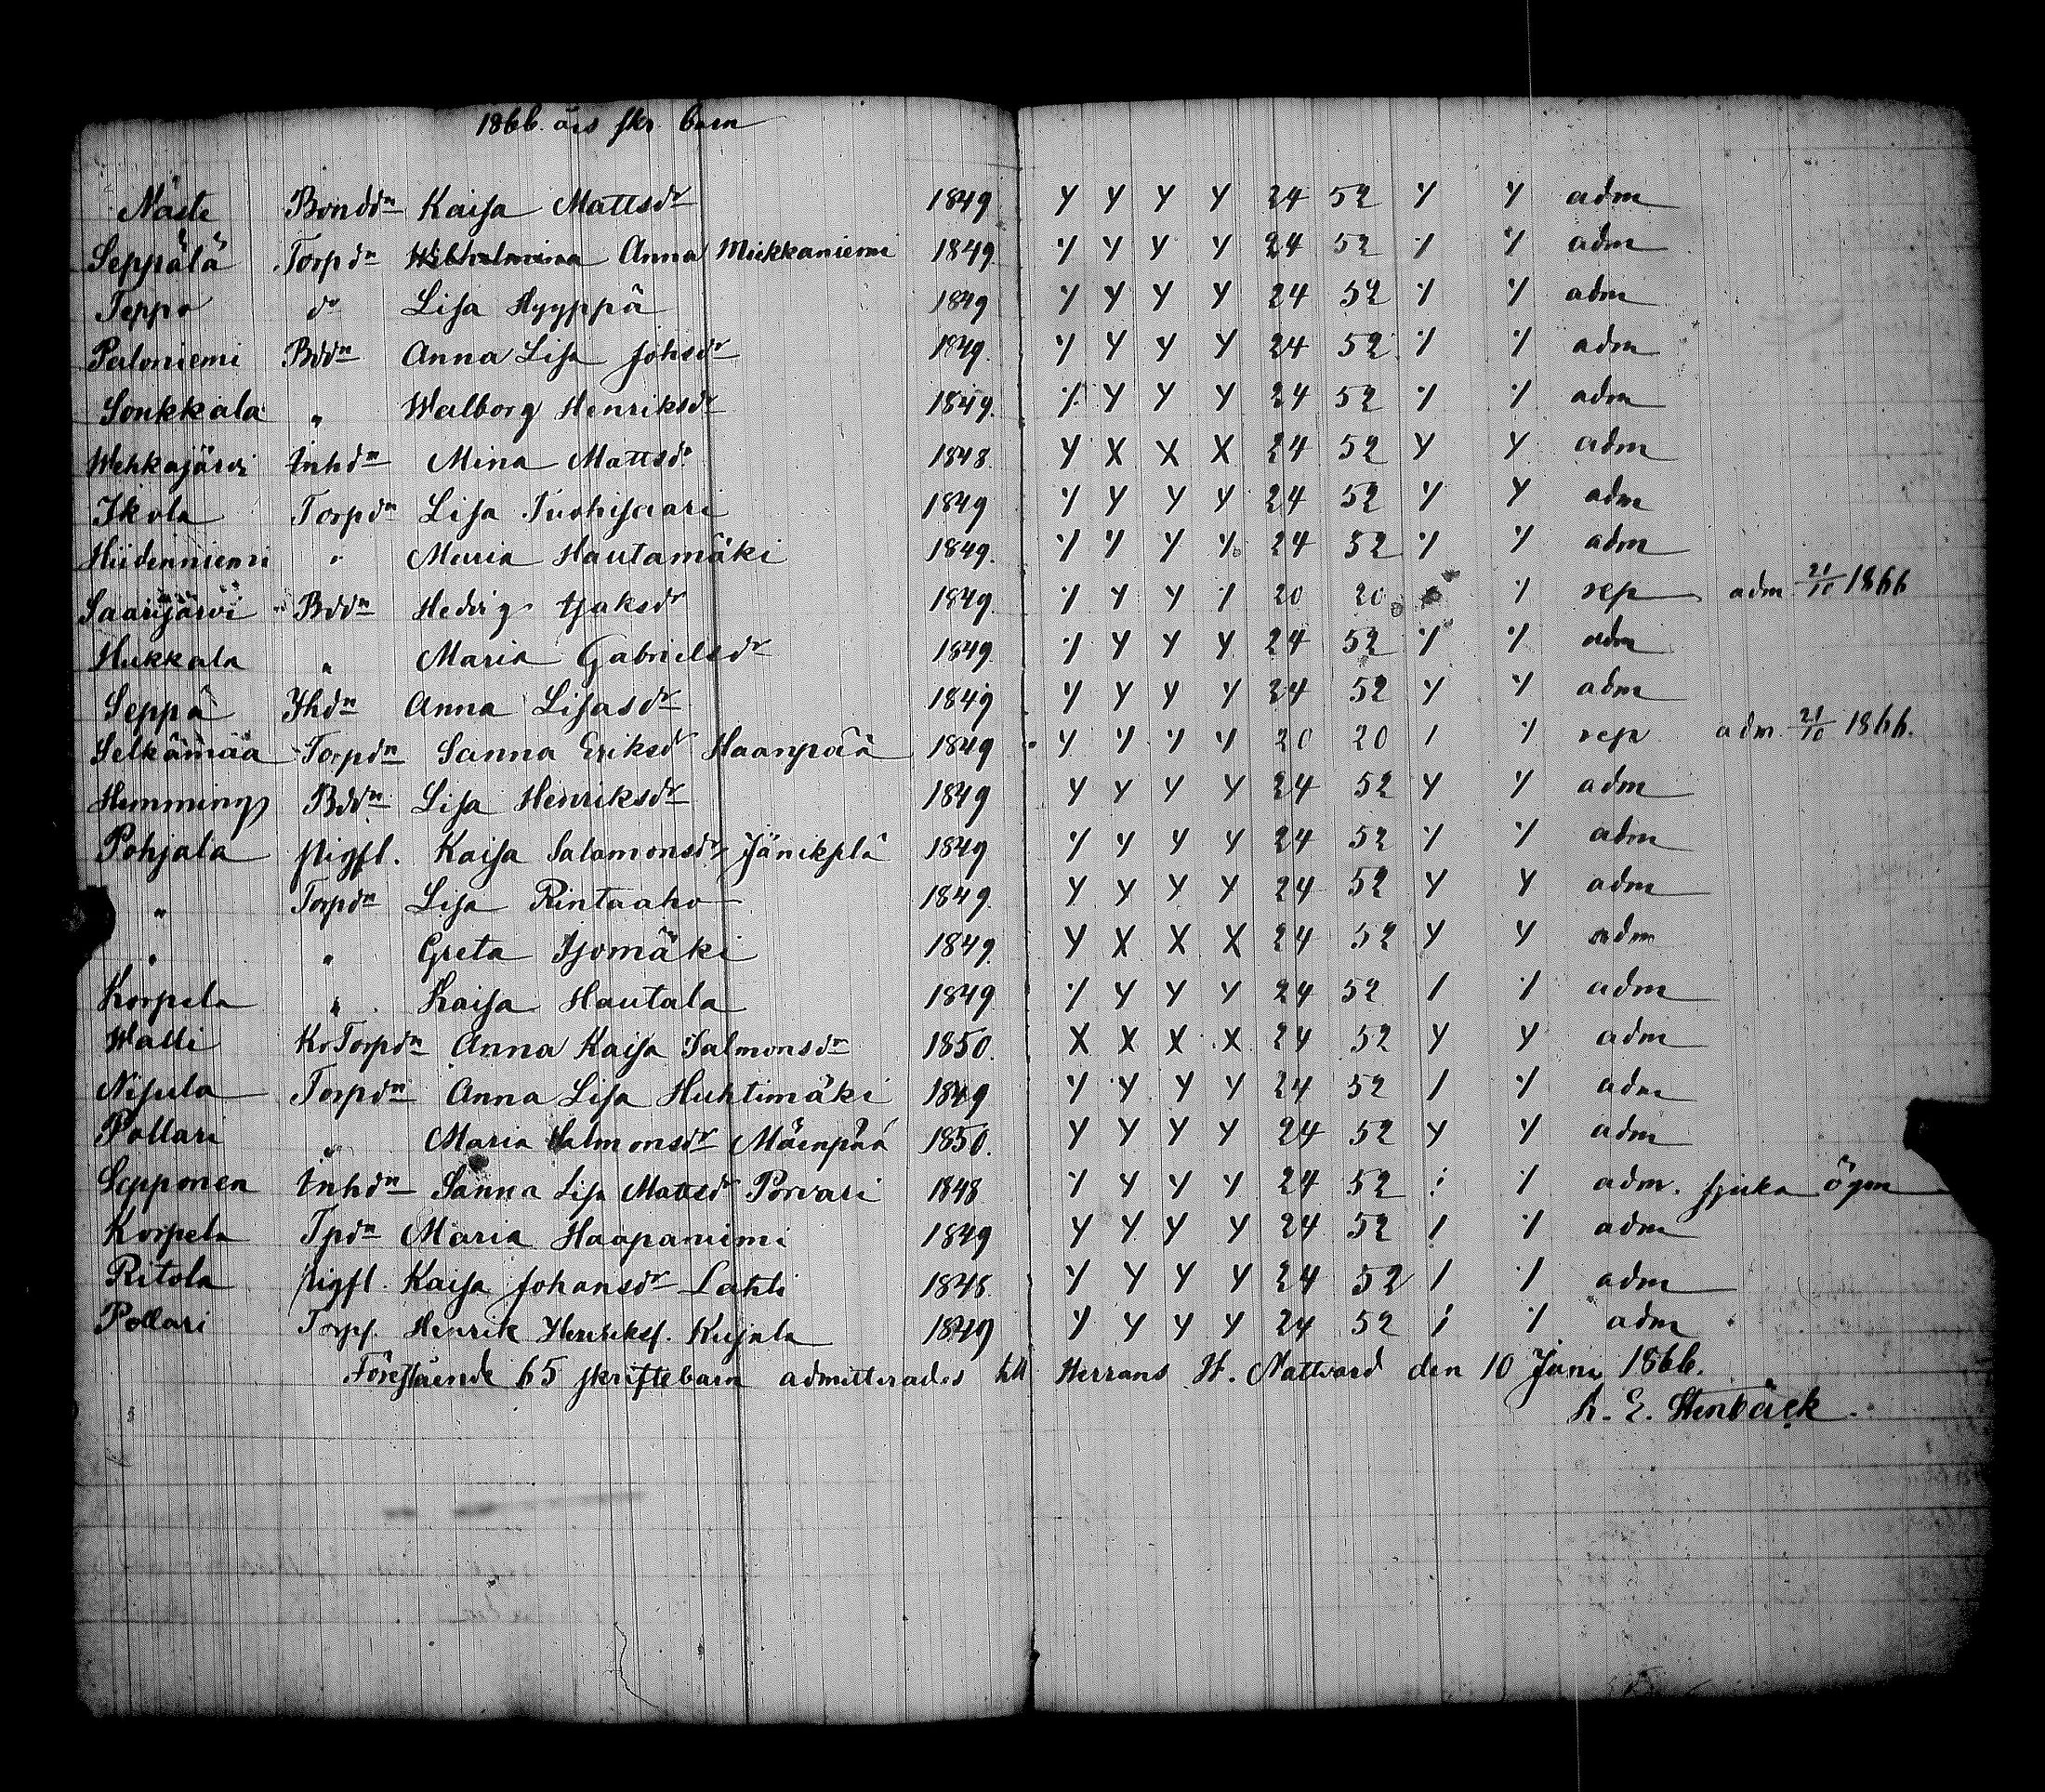 1866 års skr. barn
Näste Bonddn Kaisa Mattsdr 1849 Y Y Y Y 24 52 Y Y adm
Seppälä Torpdn Wilhelmina Anna Miekkaniemi 1849. Y Y Y Y 24 52 Y Y adm
Teppo do Lisa Hyyppä 1849 Y Y Y Y 24 52 Y Y adm
Paloniemi Bddn Anna Lisa Johsdr 1849. Y Y Y Y 24 52 Y Y adm
Sonkkala „ Walborg Henriksdr 1849. Y Y Y Y 24 52 Y Y adm
Wehkajärvi Inhdn Mina Mattsdr 1848. Y X X X 24 52 Y Y adm
Ikola Torpdn Lisa Tuohisaari 1849 Y Y Y Y 24 52 Y Y adm
Hiidenniemi „ Maria Hautamäki 1849. Y Y Y Y 24 52 Y Y adm
Saarijärvi Bddn Hedvig Isaksdr 1849. Y Y Y Y 20 20 Y rep adm 21/10 1866
Hukkala „ Maria Gabrielsdr 1849. Y Y Y Y 24 52 Y Y adm
Seppä Ihdn Anna Lisasdr 1849 Y Y Y Y 24 52 Y Y adm
Selkämaa Torpdn Sanna Eriksdr Haanpää 1849 Y Y Y Y 20 20 / Y rep adm. 21/10 1866.
Hemming Bddn Lisa Henriksdr 1849 Y Y Y Y 24 52 Y Y adm
Pohjala pigfl. Kaisa Salomonsdr 1849 Y Y Y Y 24 52 Y Y adm
„ Torpdn Lisa Rintaaho 1849. Y Y Y Y 24 52 Y Y adm
„ „ Greta Isomäki 1849. Y X X X 24 52 Y Y adm
Korpela „ Kaisa Hautala 1849 Y Y Y Y 24 52 / Y adm
Walli KrTorpdn Anna Kaisa Salmonsdr 1850. X X X X 24 52 Y Y adm
Nisula Torpdn Anna Lisa Huhtimäki 1849 Y Y Y Y 24 52 / Y adm
Pollari „ Maria Salmonsdr Mäenpää 1850. Y Y Y Y 24 52 Y Y adm
Sepponen Inhdn Sanna Lisa Mattsdr Porvari 1848 Y Y Y Y 24 52 / Y adm. sjuka ögon
Korpela Tpdn Maria Haapaniemi 1849 Y Y Y Y 24 52 / Y adm
Ritola pigfl. Kaisa Johansdr Lahti 1848. Y Y Y Y 24 52 / Y adm
Pollari Torps. Henrik Henrikss. Kujala 1849 Y Y Y Y 24 52 / Y adm
Förestående 65 skriftebarn admitterades till Herrans H. Nattvard den 10 Juni 1866.
K. E. Stenbäck.